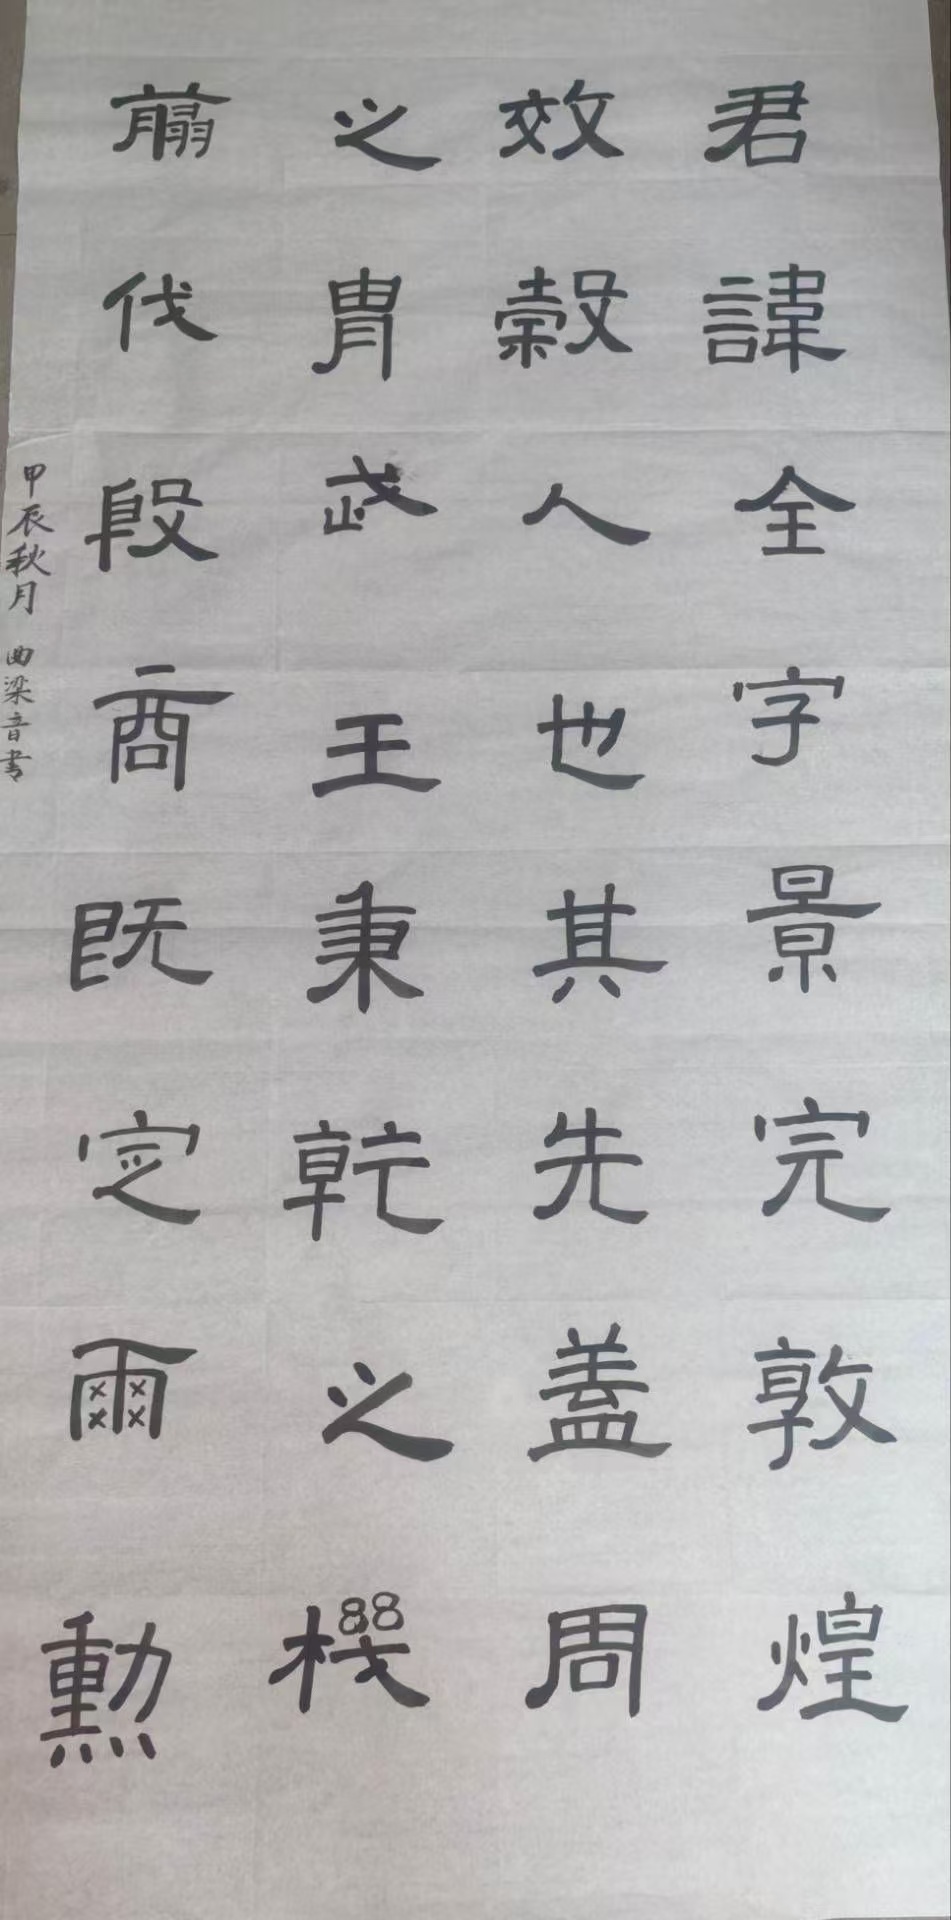 君諱全字景完敦煌
效穀人也其先蓋周
之胄武王秉乾之機
翦伐殷商既定爾勳
甲辰秋月 曲梁音書